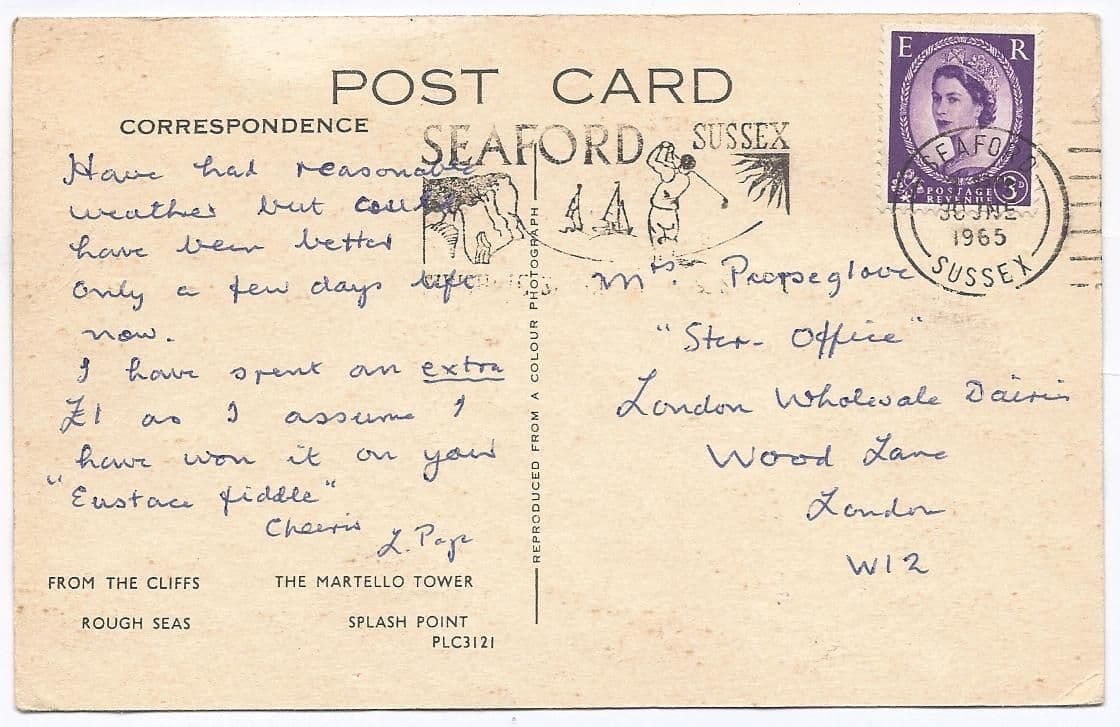 POST CARD
CORRESPONDENCE
SEAFORD SUSSEX
E R
POSTAGE
REVENUE
3D
SEAFORD
30 JNE
1965
SUSSEX
Have had reasonable
weather but could
have been better
Only a few days left
now.
I have spent an extra
£1 as I assume I
have won it on your
"Eustace fiddle"
Cheerio
L. Page
FROM THE CLIFFS THE MARTELLO TOWER
ROUGH SEAS SPLASH POINT
PLC3121
REPRODUCED FROM A COLOUR PHOTOGRAPH
Mrs. Purseglove
"Ster- Office"
London Wholesale Dairies
Wood Lane
London
W12